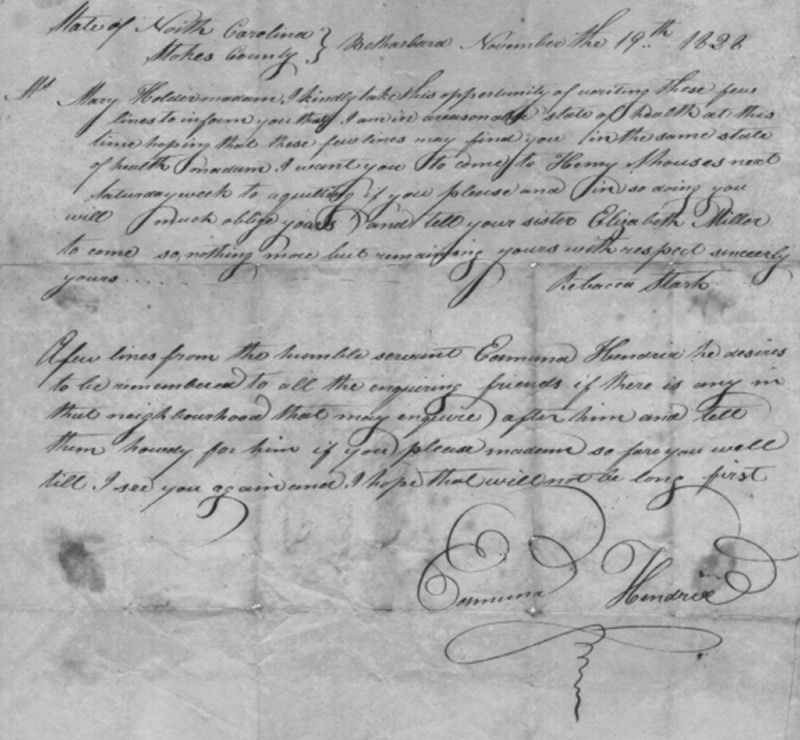 State of North Carolina }
Stokes County } Bethabara November the 19..th 1828
Mrs Mary Holder madam, I kindly take this opportunity of writing these few
lines to inform you that I am in areasonable state of health at this
time hoping that these few lines may find you in the same state
of health madam I want you to come to Henry Shouses next
Saturday week to a quilting if you please and in so doing you
will much oblige yours and tell your sister Elizabeth Miller
to come so, nothing more but remaining yours with respect sincerly
yours....
Rebacca Stark
Afew lines from the humble servant Edmund Hendrix he desires
to be remembered to all the enquiring friends if there is any in
that neighbourhood that may enquire after him and tell
them howdy for him if you please madam so fare you well
till I see you again and I hope that will not be long first
Edmund Hendrix